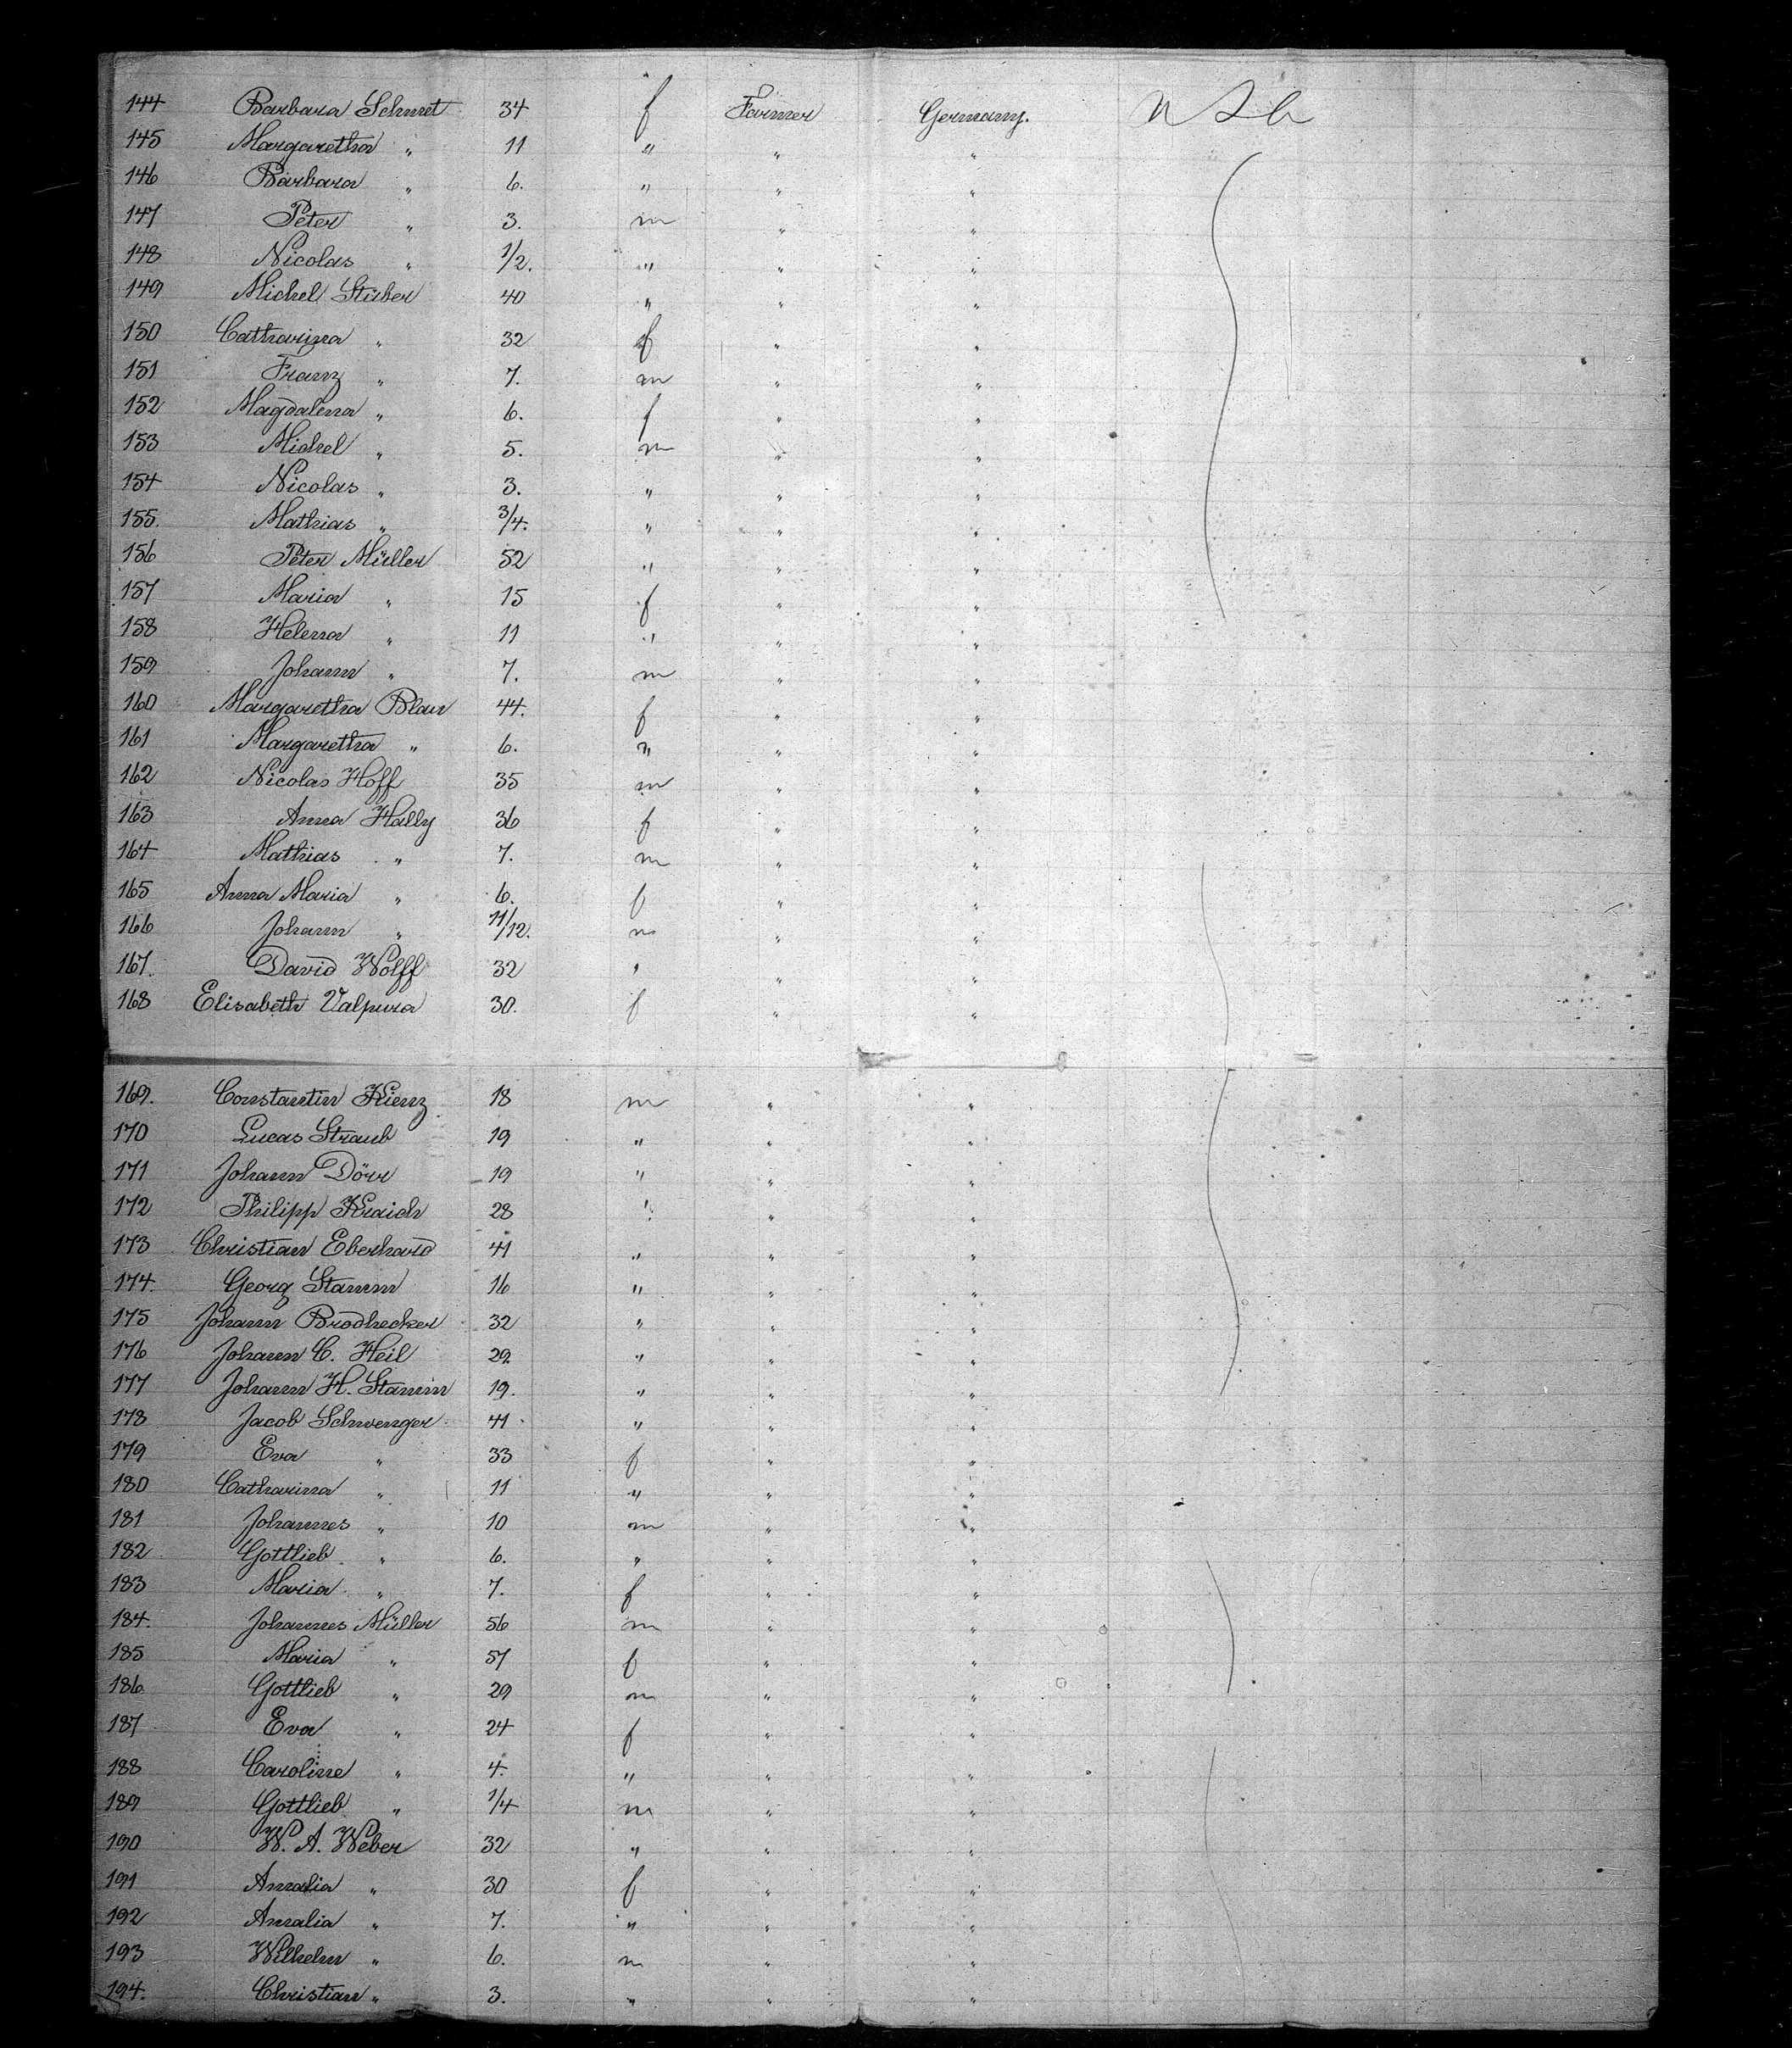 144 Barbara Schmet 34 f Farmer Germany. U S A
145 Margaretha " 11 " " "
146 Barbara " 6. " " "
147 Peter " 3. m " "
148 Nicolas " 1/2. " " "
149 Michel Stüber 40 " " "
150 Catharina " 32 f " "
151 Franz " 7. m " "
152 Magdalena " 6. f " "
153 Michel " 5. m " "
154 Nicolas " 3. " " "
155. Mathias " 3/4. " " "
156 Peter Müller 52 " " "
157 Maria " 15 f " "
158 Helena " 11 " " "
159 Johann " 7. m " "
160 Margaretha Blau 44. f " "
161 Margaretha " 6. " " "
162 Nicolas Hoff 35 m " "
163 Anna Hally 36 f " "
164 Mathias " 7. m " "
165 Anna Maria " 6. f " "
166 Johann " 11/12. m " "
167. David Wolff 32 " " "
168 Elisabeth Valpura 30. f " "
169. Constantin Kienz 18 m " "
170 Lucas Straub 19 " " "
171 Johann Dörr 19 " " "
172 Philipp Kraich 28 " " "
173 Christian Eberhard 41 " " "
174. Georg Stamm 16 " " "
175 Johann Brodhecker 32 " " "
176 Johann C. Heil 29 " " "
177 Johann H. Stamm 19. " " "
178 Jacob Schwenger 41 " " "
179 Eva " 33 f " "
180 Catharina " 11 " " "
181 Johannes " 10 m " "
182 Gottlieb " 6. " " "
183 Maria " 7. f " "
184. Johannes Müller 56 m " "
185 Maria " 57 f " "
186 Gottlieb " 29 m " "
187 Eva " 24 f " "
188 Caroline " 4. " " "
189 Gottlieb " 1/4 m " "
190 W. A. Weber 32 " " "
191 Amalia " 30 f " "
192 Amalia " 7. " " "
193 Wilhelm " 6. m " "
194. Christian " 3. " " "